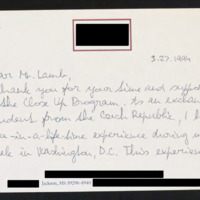 3.27.1994
ar Mr. Lamb,
hank you for your time and suppo
the Close Up Program. As an exchan
udent from the Czech Republic, I
in-a-life-time experience during
in Washington, D.C. This experienc
Jackson, MS